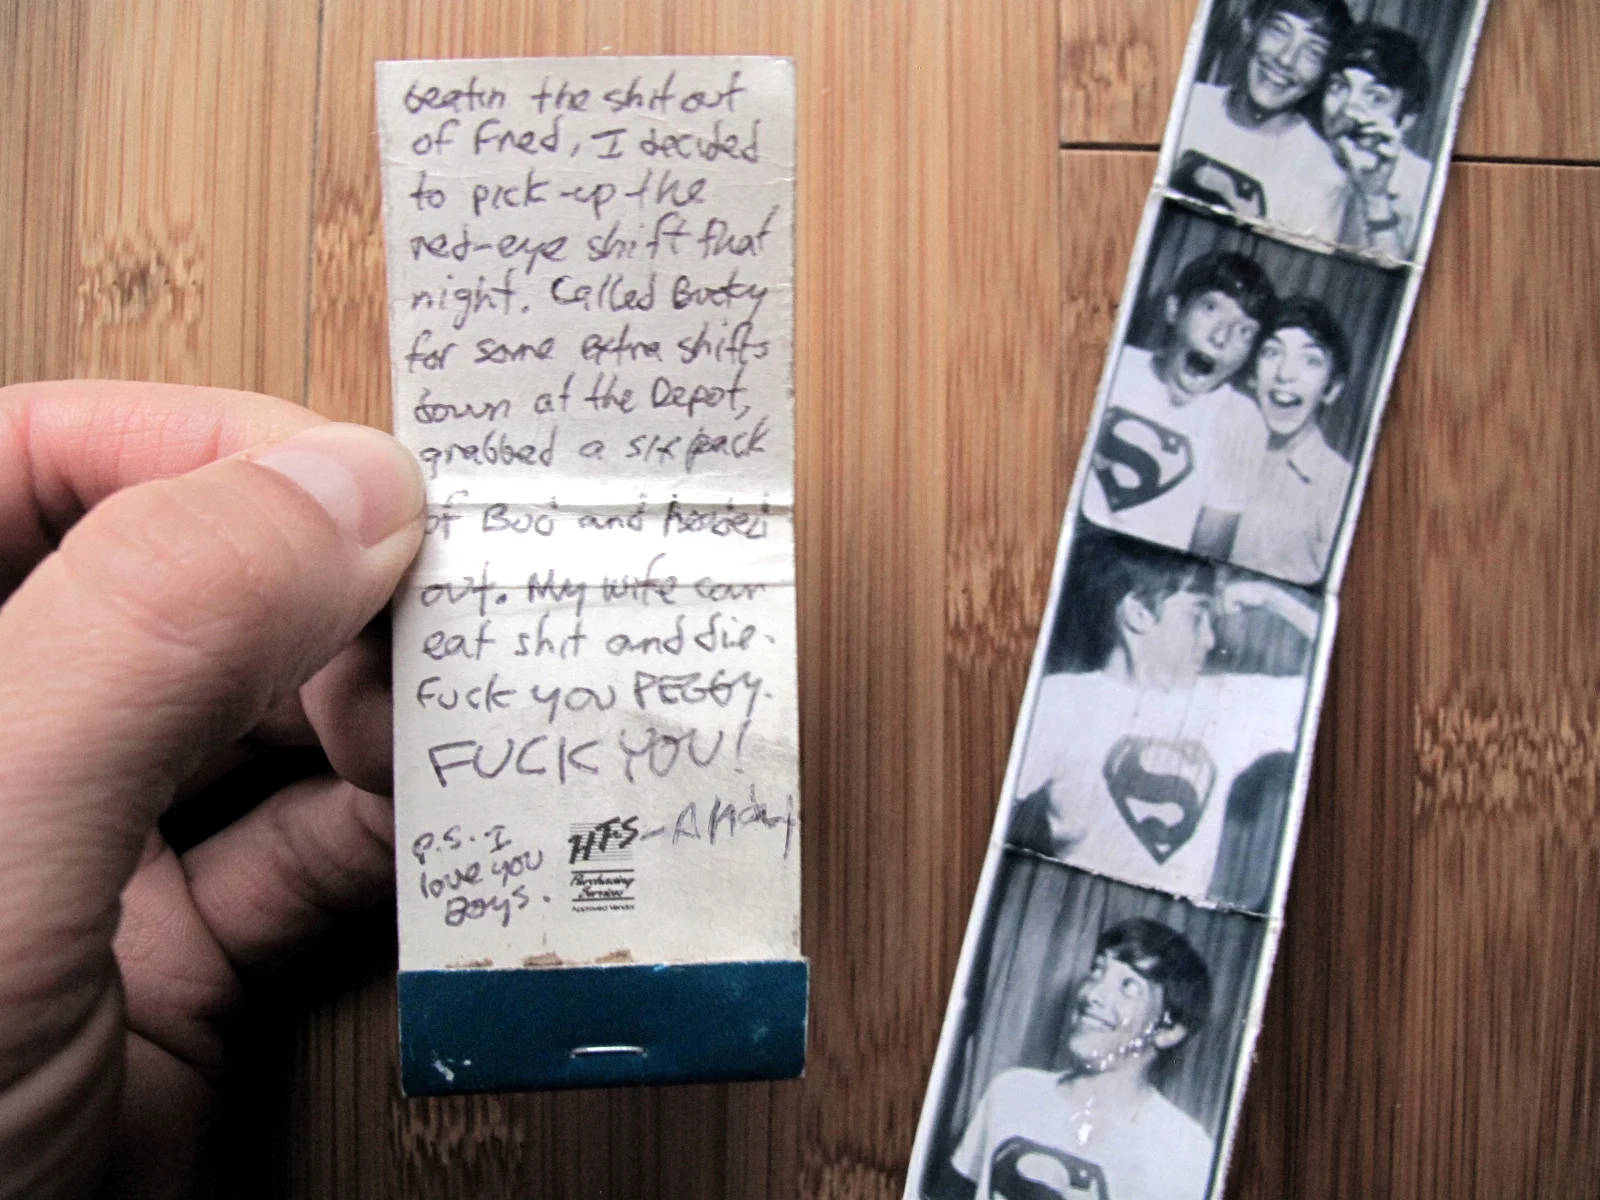 beatin the shit out
of Fred, I decided
to pick-up the
red-eye shift that
night. Called Bucky
for some extra shifts
down at the Depot,
grabbed a six pack
of Bud and headed
out. My wife can
eat shit and die.
Fuck you PEGGY.
FUCK YOU!
P.S. I
love you
Boys.
HFS
Purchasing
Services
Approved Vendor
S